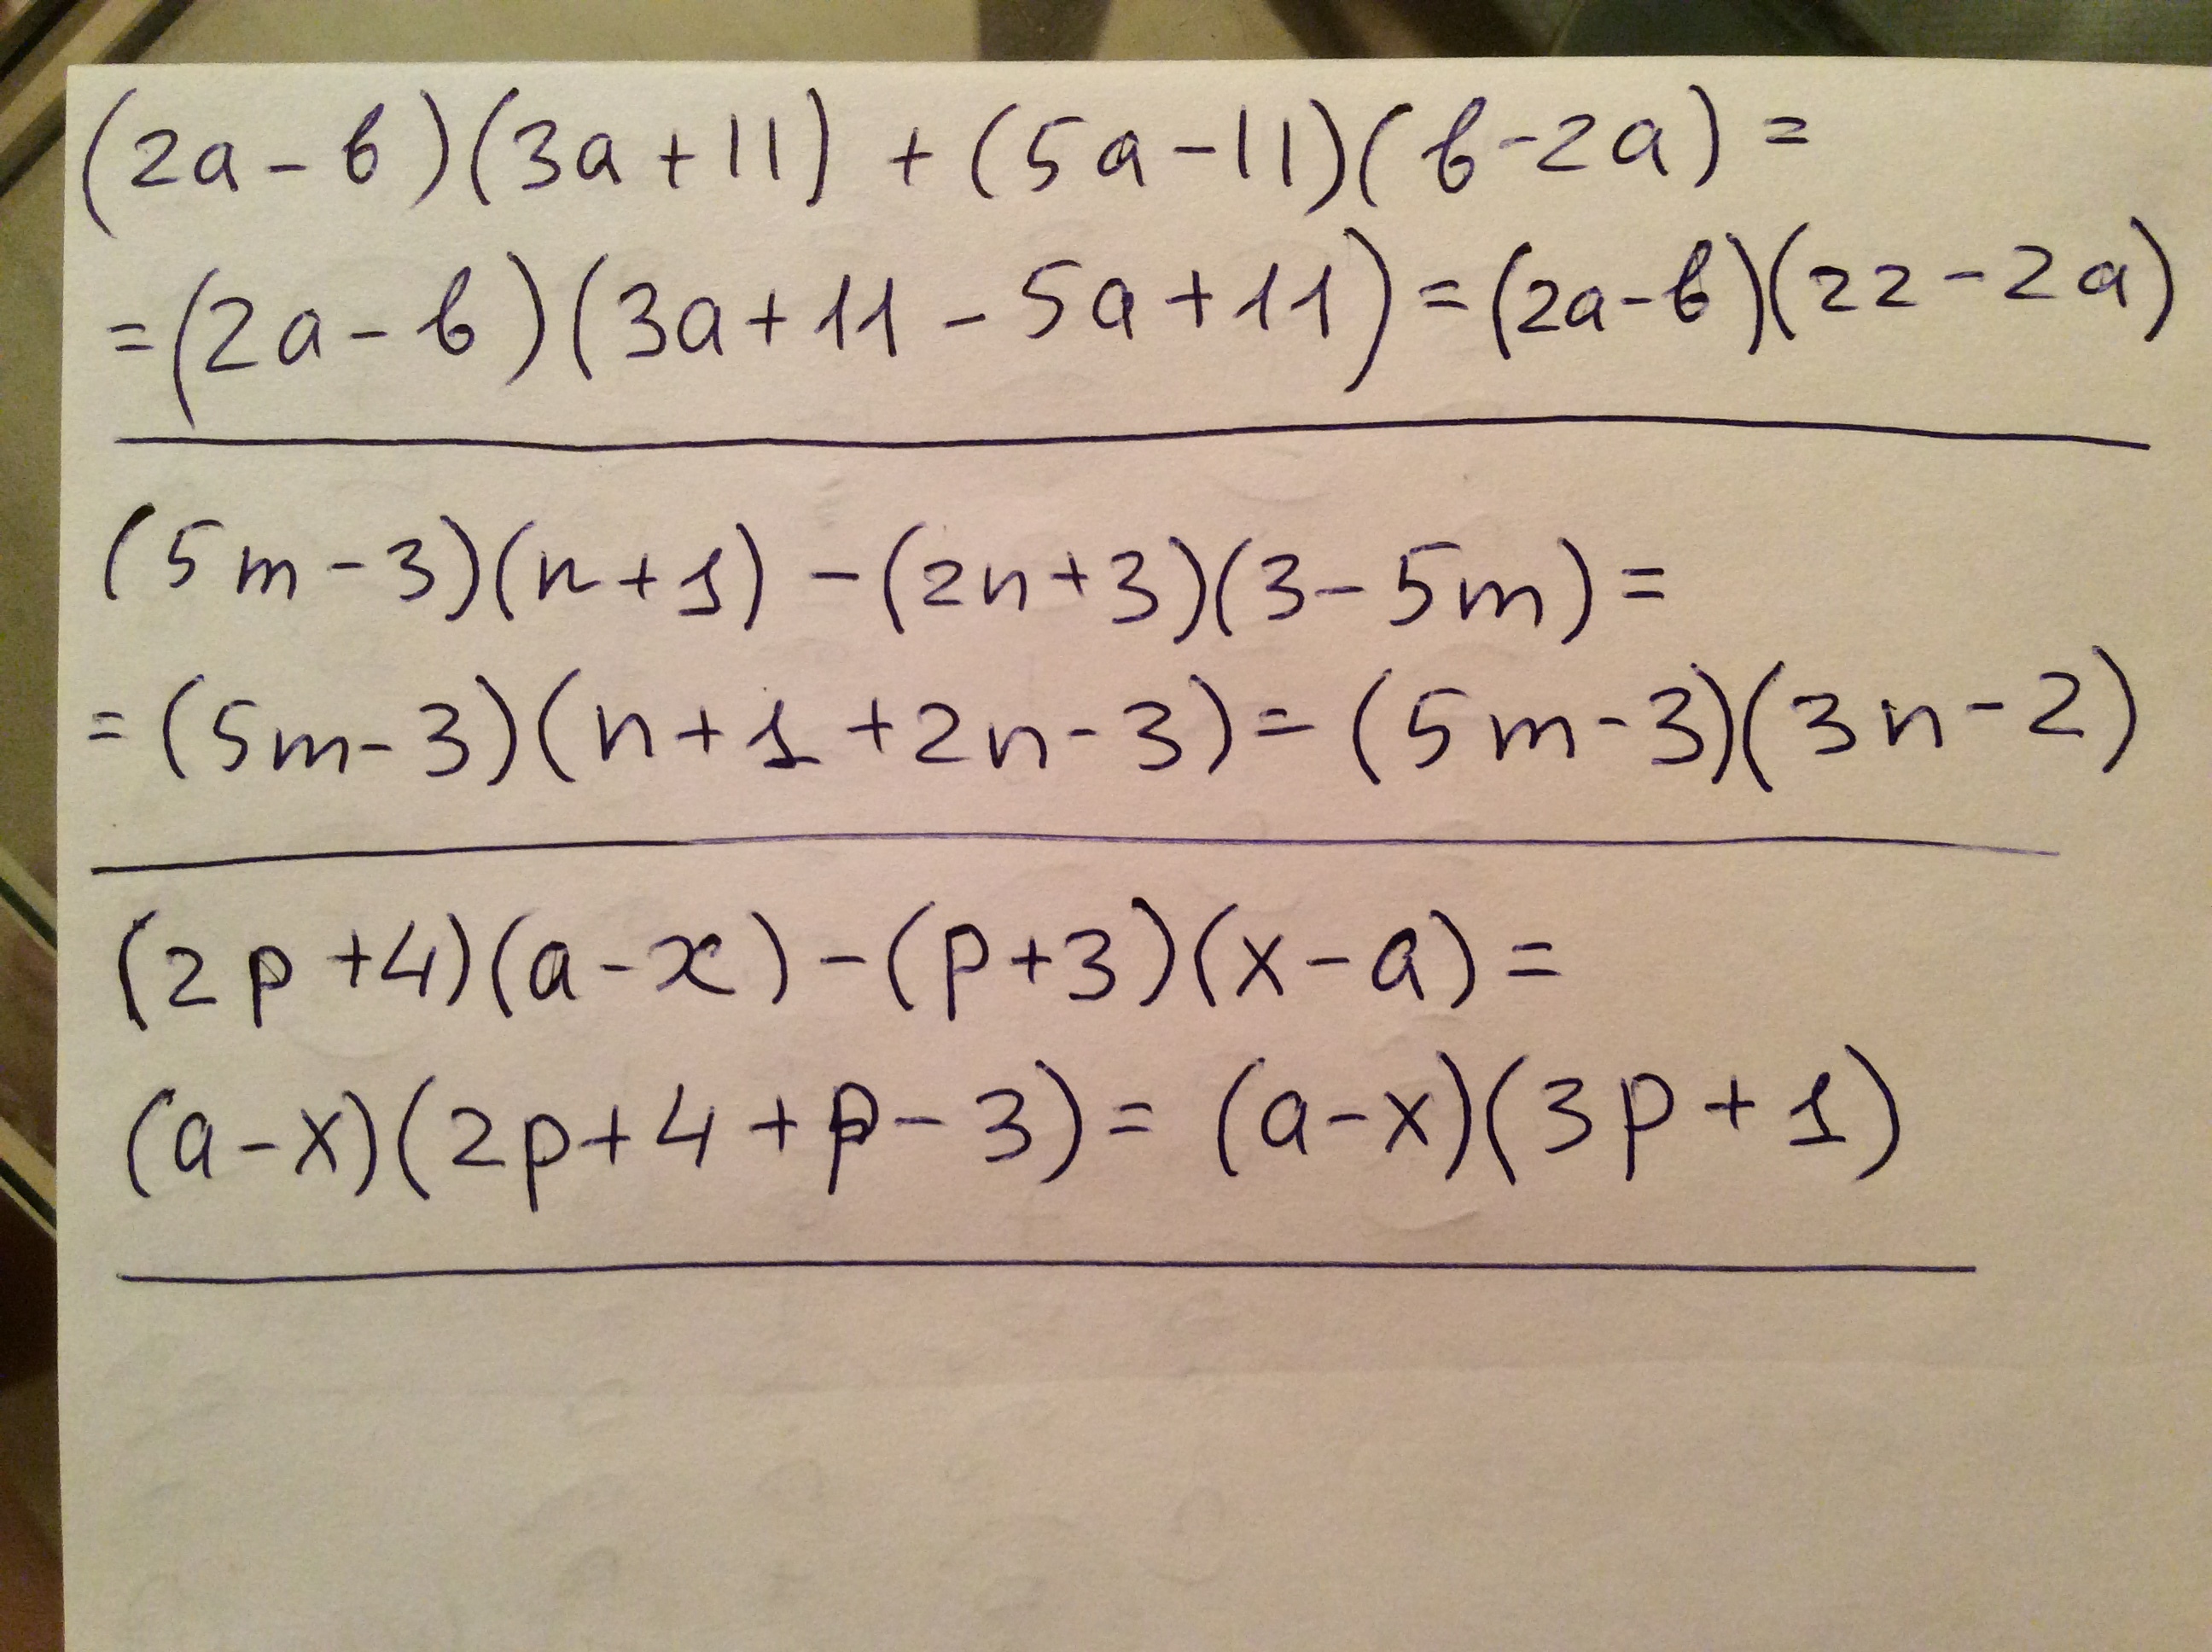 (2a-b)(3a+11)+(5a-11)(b-2a)=
=(2a-b)(3a+11-5a+11)=(2a-b)(22-2a)
(5m-3)(n+1)-(2n+3)(3-5m)=
=(5m-3)(n+1+2n-3)=(5m-3)(3n-2)
(2p+4)(a-x)-(p+3)(x-a)=
(a-x)(2p+4+p-3)=(a-x)(3p+1)